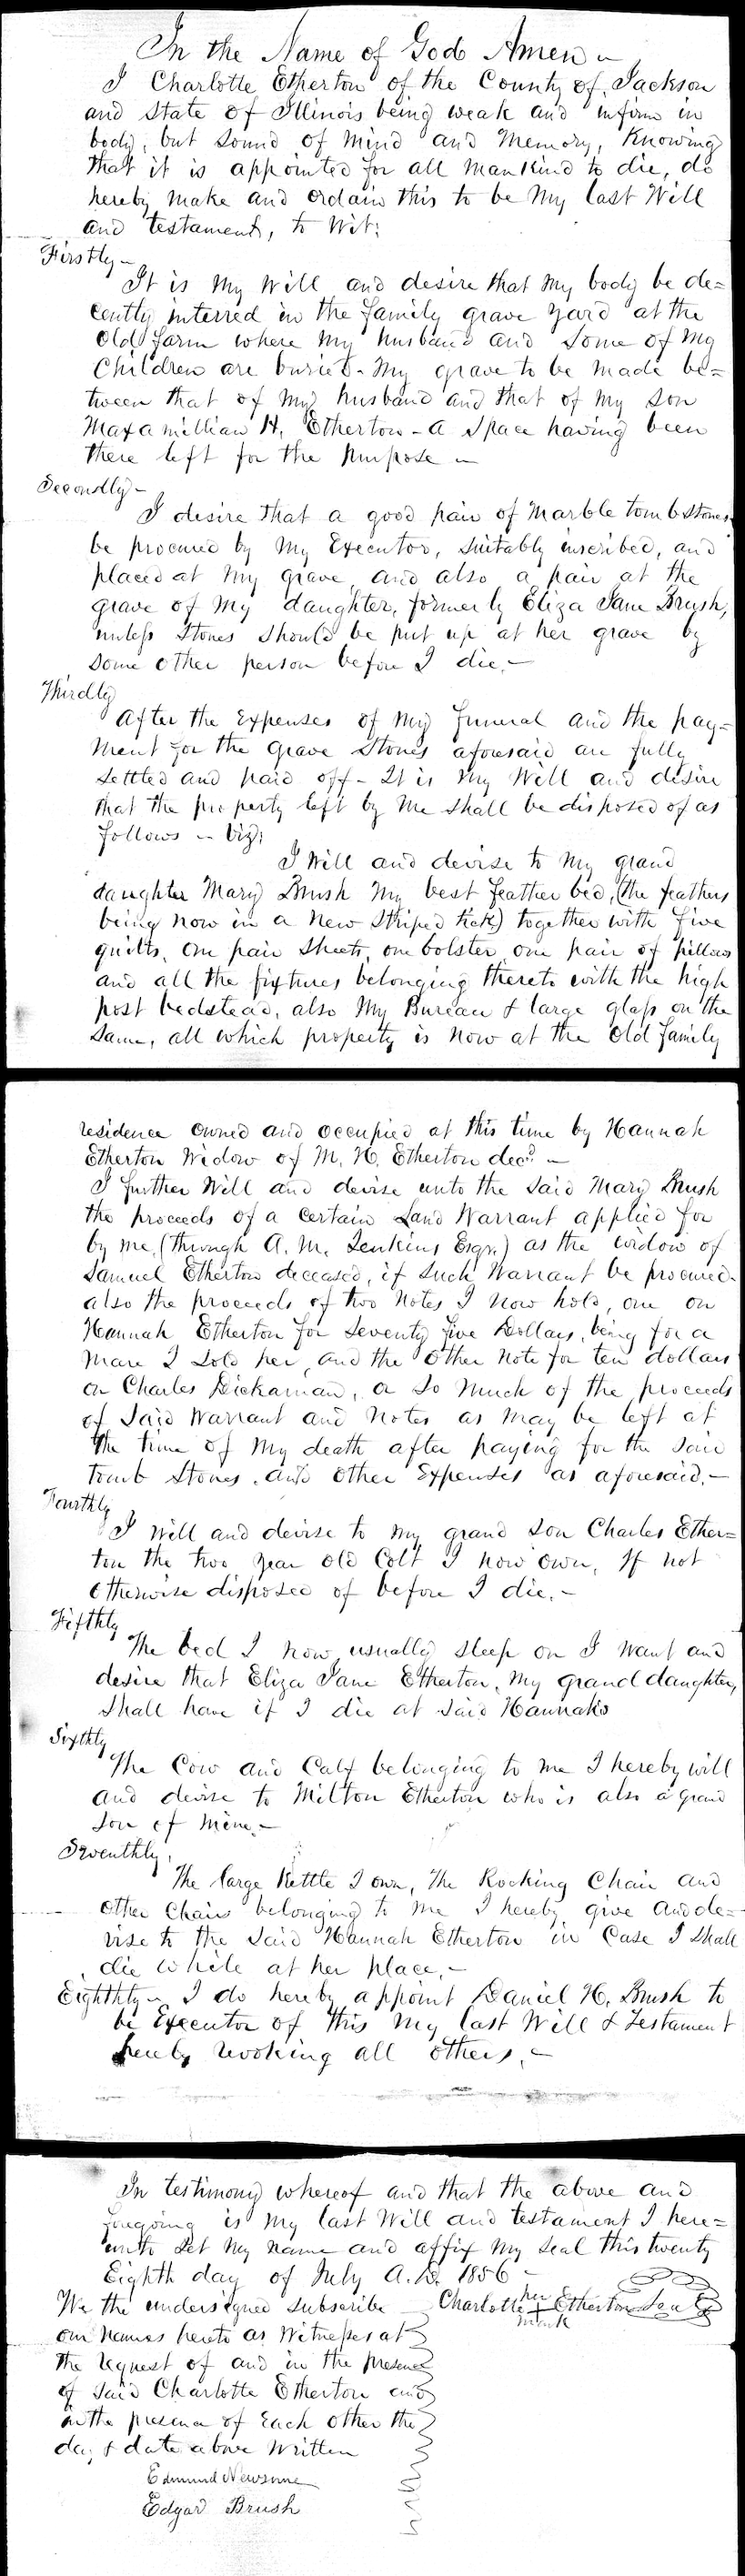 In the Name of God Amen ~
I Charlotte Etherton of the County of Jackson
and State of Illinois being weak and infirm in
body, but sound of mind and memory, Knowing
that it is appointed for all mankind to die, do
hereby make and ordain this to be my last Will
and testament, to Wit:
Firstly ~
It is my Will and desire that my body be de=
cently interred in the family grave yard at the
old farm where my husband and some of my
Children are buried. My grave to be made be=
tween that of my husband and that of my son
Maxamillian H. Etherton - a space having been
there left for the purpose ~
Secondly -
I desire that a good pair of marble tomb stones
be procured by my Executor, suitably inscribed, and
placed at my grave, and also a pair at the
grave of my daughter, formerly Eliza Jane Brush,
unless stones should be put up at her grave by
some other person before I die. -
Thirdly
After the expenses of my funeral and the pay=
ment for the grave stones aforesaid are fully
settled and paid off - It is my Will and desire
that the property left by me shall be disposed of as
follows ~ viz;
I Will and devise to my grand
daughter Mary Brush my best feather bed, (the feathers
being now in a new striped tick) together with five
quilts, one pair sheets, one bolster, one pair of pillows
and all the fixtures belonging thereto with the high
post bedstead, also my Bureau & large glass on the
same, all which property is now at the old family
residence owned and occupied at this time by Hannah
Etherton Widow of M. H. Etherton decd. ~
I further Will and devise unto the said Mary Brush
the proceeds of a certain Land Warrant applied for
by me, (through A. M. Jenkins Esqr.) as the widow of
Samuel Etherton deceased, if such Warrant be procured.
also the proceeds of two notes I now hold, one on
Hannah Etherton for Seventy five Dollars, being for a
mare I sold her, and the other note for ten dollars
on Charles Dickaman, or so much of the proceeds
of said Warrant and notes as may be left at
the time of my death after paying for the said
tomb stones, and other expenses as aforesaid. -
Fourthly
I Will and devise to my grand son Charles Ether=
ton the two year old Colt I now own, If not
otherwise disposed of before I die. -
Fifthly
The bed I now usually sleep on I want and
desire that Eliza Jane Etherton, my grand daughter,
shall have if I die at said Hannah's
Sixthly
The Cow and Calf belonging to me I hereby will
and devise to Milton Etherton who is also a grand
son of mine. -
Seventhly,
The large Kettle I own, the Rocking Chair and
other Chairs belonging to me I hereby give and de=
vise to the said Hannah Etherton in Case I shall
die while at her place. -
Eighthly ~ I do hereby appoint Daniel H. Brush to
be Executor of this my last Will & Testament
hereby revoking all others. -
In testimony whereof and that the above and
foregoing is my last Will and testament I here=
unto set my name and affix my seal this twenty
Eighth day of July A.D. 1856 -
Charlotte her + mark Etherton Seal
We the undersigned subscribe
our names hereto as Witnesses at
the request of and in the presence
of said Charlotte Etherton and
in the presence of each other the
day & date above written
Edmund Newsome
Edgar Brush